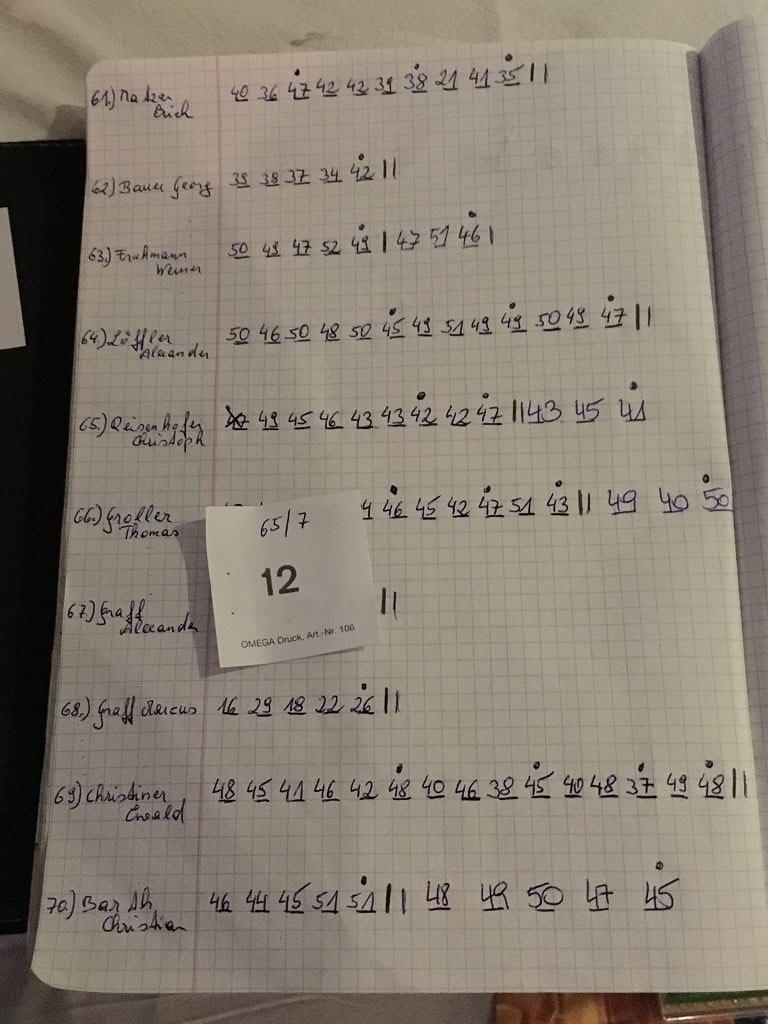 61.) Matzer 40 36 47 42 42 39 38 21 41 35 ||
Erich
62.) Bauer Georg 39 38 37 34 42 ||
63.) Fruhmann 50 49 47 52 49 | 47 51 46 |
Werner
64.) Löffler 50 46 50 48 50 45 49 51 49 49 50 49 47 ||
Alexander
65.) Reisenhofer 49 45 46 43 43 42 42 47 || 43 45 41
Christoph
66.) Groller 4 46 45 42 47 51 43 || 49 40 50
Thomas
65/7
12
OMEGA Druck, Art.-Nr. 106
67.) Graff ||
Alexander
68.) Graff Marcus 16 29 18 22 26 ||
69.) Christiner 48 45 41 46 42 48 40 46 38 45 40 48 37 49 48 ||
Ewald
70.) Barth 46 44 45 51 51 || 48 49 50 47 45
Christian